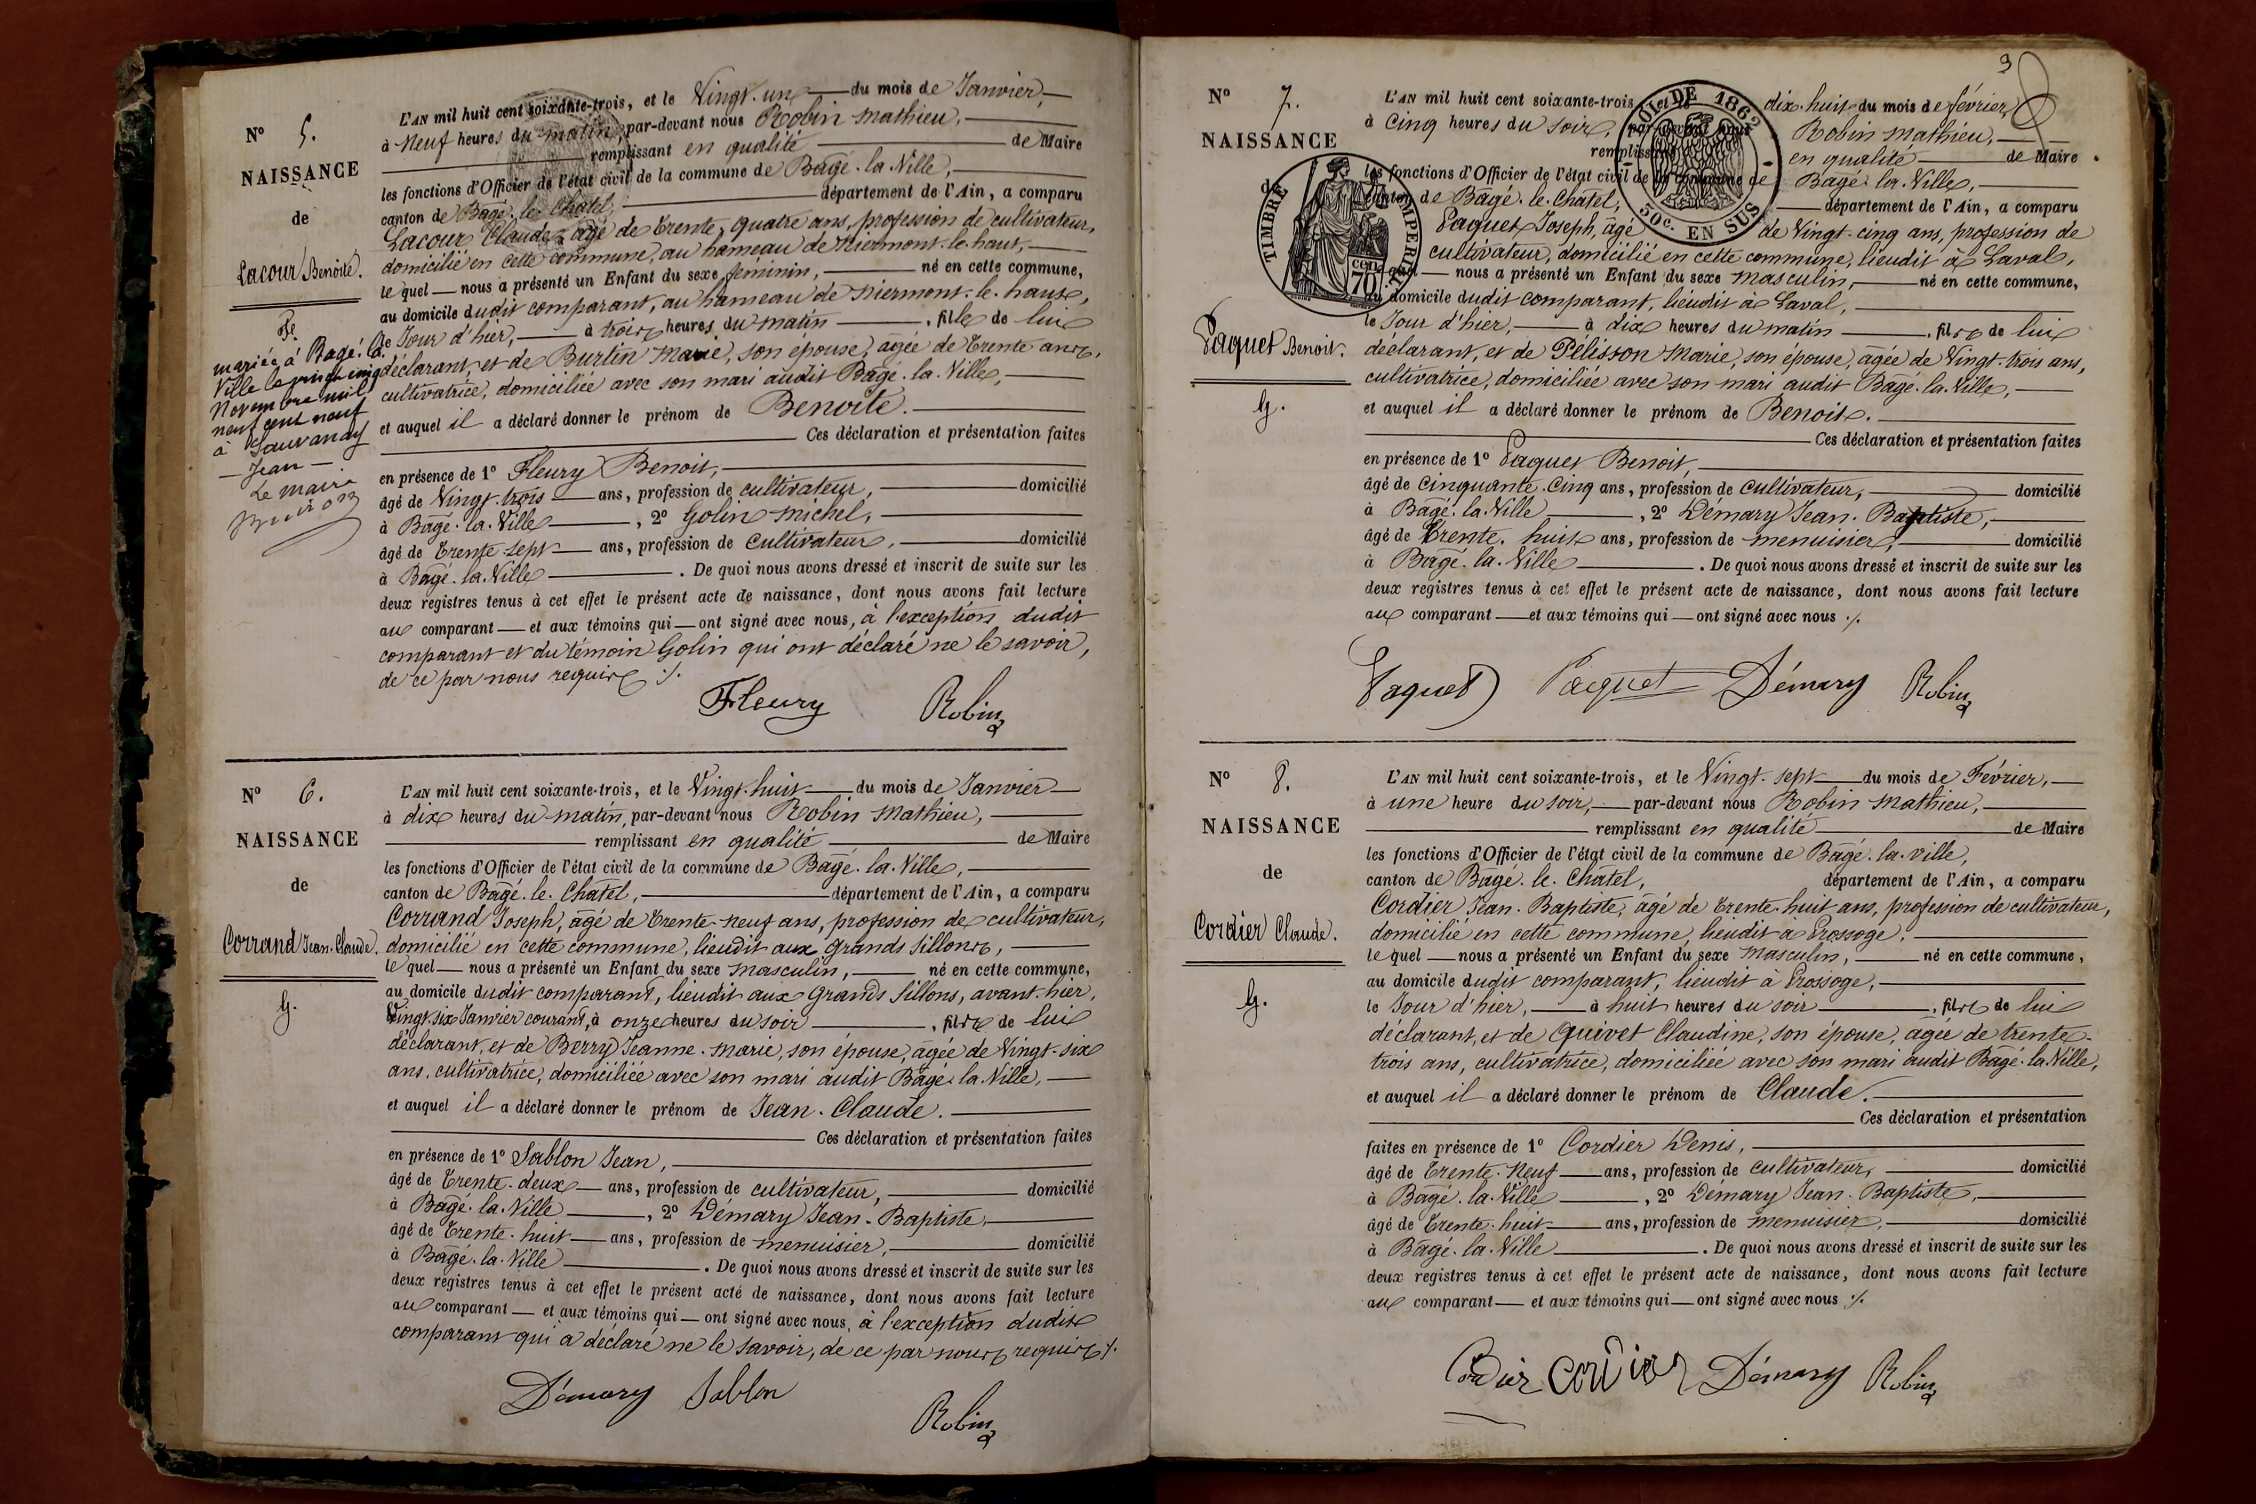 N° 5.
NAISSANCE
de
Lacour Benoîte.
Fe
mariée à Bagé-la-
Ville le vingt cinq
Novembre mil
neuf cent neuf
à Sauvanay
— Jean —
Le maire
L'AN mil huit cent soixante-trois, et le Vingt-un du mois de Janvier,
à Neuf heures du matin, par-devant nous Robin Mathieu,
remplissant en qualité de Maire
les fonctions d'Officier de l'état civil de la commune de Bagé-la-Ville,
canton de Bagé-le-Châtel, département de l'Ain, a comparu
Lacour Claude, âgé de trente-quatre ans, profession de cultivateur,
domicilié en cette commune, au hameau de Niermont-le-haut,
le quel nous a présenté un Enfant du sexe féminin, né en cette commune,
au domicile dudit comparant, au hameau de Niermont-le-haut,
le Jour d'hier, à trois heures du matin, fille de lui
déclarant, et de Burtin Marie, son épouse, âgée de trente ans,
cultivatrice, domiciliée avec son mari audit Bagé-la-Ville,
et auquel il a déclaré donner le prénom de Benoîte.
Ces déclaration et présentation faites
en présence de 1° Fleury Benoit,
âgé de Vingt-trois ans, profession de cultivateur, domicilié
à Bagé-la-Ville, 2° Golin Michel,
âgé de trente-sept ans, profession de cultivateur, domicilié
à Bagé-la-Ville. De quoi nous avons dressé et inscrit de suite sur les
deux registres tenus à cet effet le présent acte de naissance, dont nous avons fait lecture
au comparant et aux témoins qui ont signé avec nous, à l'exception dudit
comparant et du témoin Golin qui ont déclaré ne le savoir,
de ce par nous requis ./.
Fleury Robin
N° 6.
NAISSANCE
de
Corrand Jean-Claude.
G.
L'AN mil huit cent soixante-trois, et le Vingt-huit du mois de Janvier
à dix heures du matin, par-devant nous Robin Mathieu,
remplissant en qualité de Maire
les fonctions d'Officier de l'état civil de la commune de Bagé-la-Ville,
canton de Bagé-le-Châtel, département de l'Ain, a comparu
Corrand Joseph, âgé de trente-neuf ans, profession de cultivateur,
domicilié en cette commune, lieudit aux grands Sillons,
le quel nous a présenté un Enfant du sexe masculin, né en cette commune,
au domicile dudit comparant, lieudit aux Grands Sillons, avant-hier,
Vingt-six Janvier courant, à onze heures du soir, fils de lui
déclarant, et de Berry Jeanne-Marie, son épouse, âgée de Vingt-six
ans, cultivatrice, domiciliée avec son mari audit Bagé-la-Ville,
et auquel il a déclaré donner le prénom de Jean-Claude.
Ces déclaration et présentation faites
en présence de 1° Sablon Jean,
âgé de trente-deux ans, profession de cultivateur, domicilié
à Bagé-la-Ville, 2° Démary Jean-Baptiste,
âgé de trente-huit ans, profession de menuisier, domicilié
à Bagé-la-Ville. De quoi nous avons dressé et inscrit de suite sur les
deux registres tenus à cet effet le présent acte de naissance, dont nous avons fait lecture
au comparant et aux témoins qui ont signé avec nous, à l'exception dudit
comparant qui a déclaré ne le savoir, de ce par nous requis ./.
Démary Sablon
Robin
3
N° 7.
NAISSANCE
de
TIMBRE IMPERIAL
70 cen
LOI DE 1862
50c. EN SUS
Paquet Benoit.
G.
L'AN mil huit cent soixante-trois, et le dix-huit du mois de février,
à Cinq heures du soir, par-devant nous Robin Mathieu,
remplissant en qualité de Maire
les fonctions d'Officier de l'état civil de la commune de Bagé-la-Ville,
canton de Bagé-le-Châtel, département de l'Ain, a comparu
Paquet Joseph, âgé de Vingt-cinq ans, profession de
cultivateur, domicilié en cette commune, lieudit à Laval,
lequel nous a présenté un Enfant du sexe masculin, né en cette commune,
au domicile dudit comparant, lieudit à Laval,
le Jour d'hier, à dix heures du matin, fils de lui
déclarant, et de Pélisson Marie, son épouse, âgée de Vingt-trois ans,
cultivatrice, domiciliée avec son mari audit Bagé-la-Ville,
et auquel il a déclaré donner le prénom de Benoit.
Ces déclaration et présentation faites
en présence de 1° Paquet Benoit,
âgé de cinquante-cinq ans, profession de cultivateur, domicilié
à Bagé-la-Ville, 2° Démary Jean-Baptiste,
âgé de trente-huit ans, profession de menuisier, domicilié
à Bagé-la-Ville. De quoi nous avons dressé et inscrit de suite sur les
deux registres tenus à cet effet le présent acte de naissance, dont nous avons fait lecture
au comparant et aux témoins qui ont signé avec nous ./.
Paquet Paquet Démary Robin
N° 8.
NAISSANCE
de
Cordier Claude.
G.
L'AN mil huit cent soixante-trois, et le Vingt-sept du mois de Février,
à une heure du soir, par-devant nous Robin Mathieu,
remplissant en qualité de Maire
les fonctions d'Officier de l'état civil de la commune de Bagé-la-ville,
canton de Bagé-le-Châtel, département de l'Ain, a comparu
Cordier Jean-Baptiste, âgé de trente-huit ans, profession de cultivateur,
domicilié en cette commune, lieudit à Brossoge,
le quel nous a présenté un Enfant du sexe masculin, né en cette commune,
au domicile dudit comparant, lieudit à Brossoge,
le Jour d'hier, à huit heures du soir, fils de lui
déclarant, et de Quivet Claudine, son épouse, âgée de trente-
trois ans, cultivatrice, domiciliée avec son mari audit Bagé-la-Ville,
et auquel il a déclaré donner le prénom de Claude.
Ces déclaration et présentation
faites en présence de 1° Cordier Denis,
âgé de trente-neuf ans, profession de cultivateur, domicilié
à Bagé-la-Ville, 2° Démary Jean-Baptiste,
âgé de trente-huit ans, profession de menuisier, domicilié
à Bagé-la-Ville. De quoi nous avons dressé et inscrit de suite sur les
deux registres tenus à cet effet le présent acte de naissance, dont nous avons fait lecture
au comparant et aux témoins qui ont signé avec nous ./.
Cordier Cordier Démary Robin